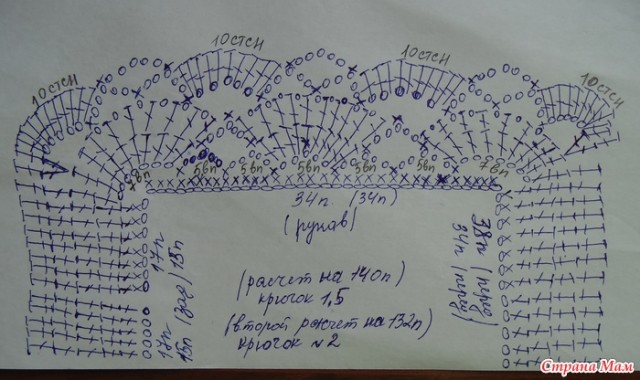 10 стсн
10 стсн
10 стсн
10 стсн
7 вп
5 вп
5 вп
5 вп
5 вп
5 вп
7 вп
34п. (34п)
(рукав)
17п
(зад) 18п
17п
15п
38п (перед)
34п (перед)
(расчет на 140п)
крючок 1,5
(второй расчет на 132п)
крючок №2
Страна Мам